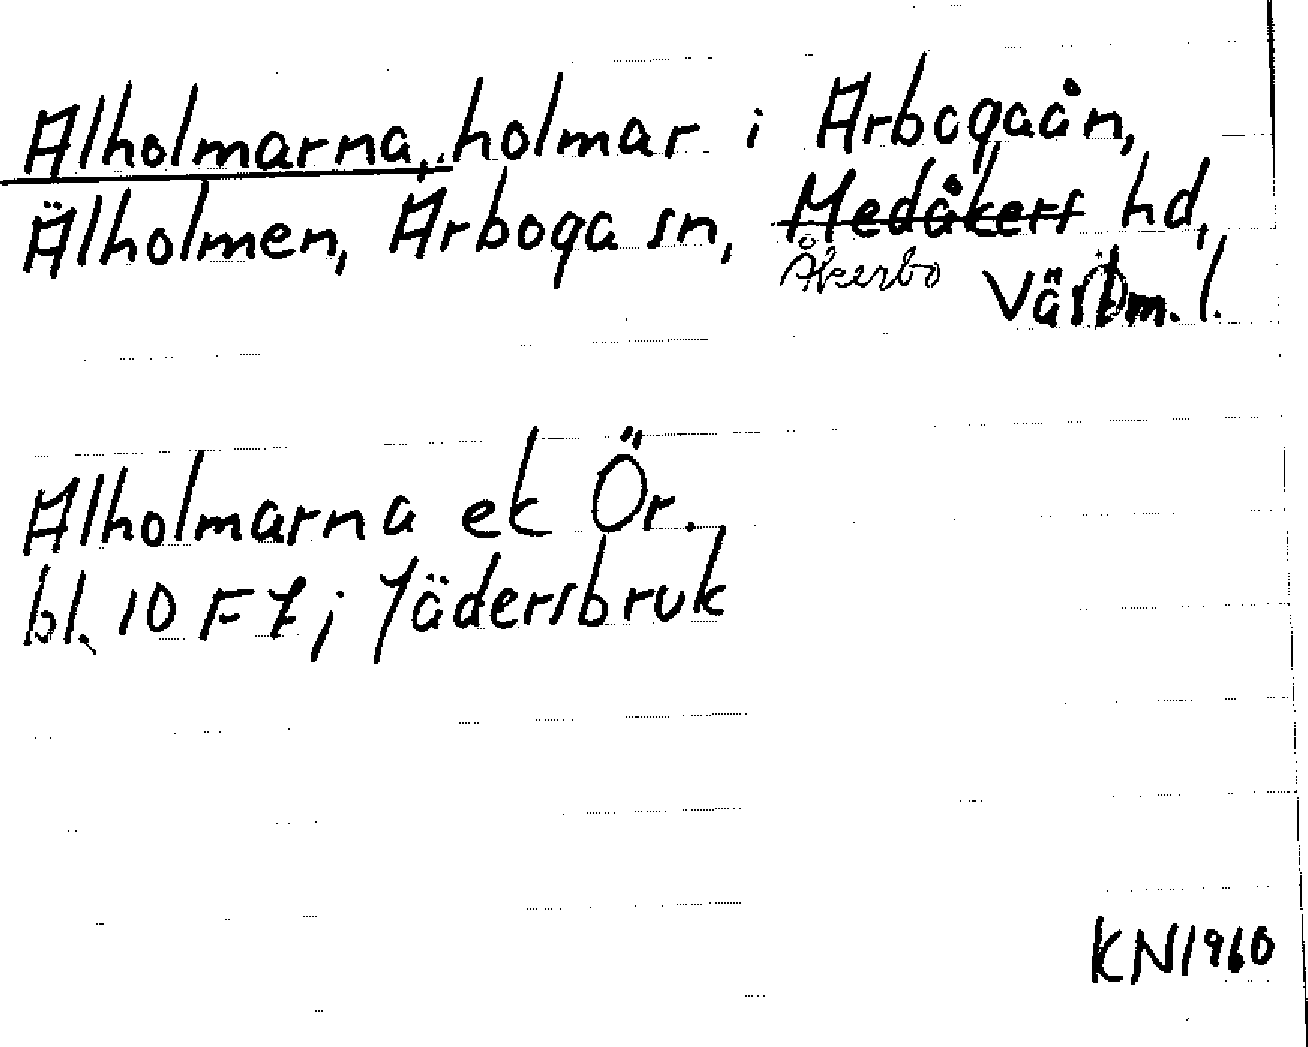 Alholmarna, holmar i Arbogaån,
Älholmen, Arboga sn, Medåkers hd,
Åkerbo Västm. l.
Alholmarna ek Ör.
bl. 10 F 7; Jädersbruk
KN1960